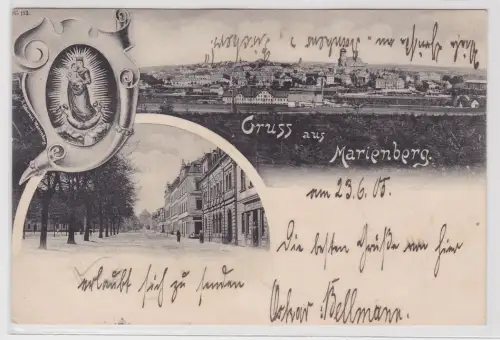 Gruss aus
Marienberg.
am 23.6.05.
Die besten Grüße von hier
erlaubt sich zu senden
Oskar Bellmann.